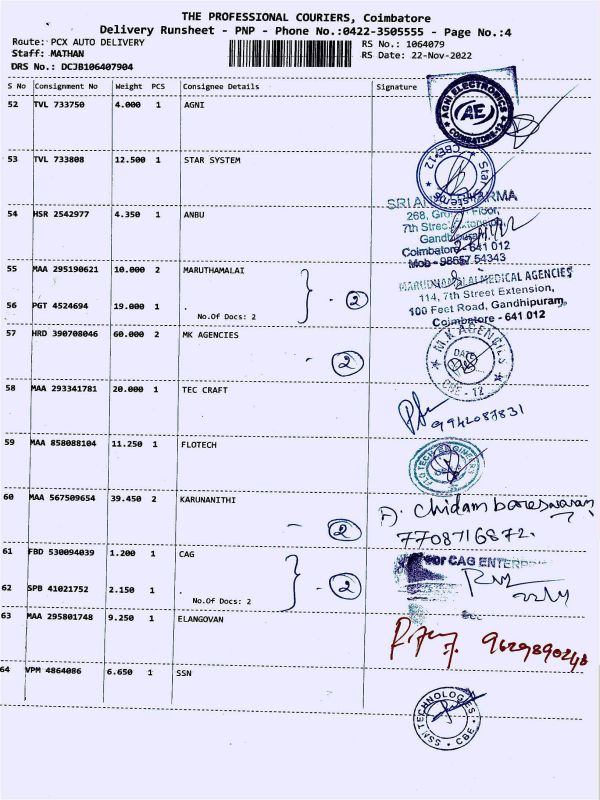 THE PROFESSIONAL COURIERS, Coimbatore
Delivery Runsheet - PNP - Phone No.:0422-3505555 - Page No.:4
Route: PCX AUTO DELIVERY RS No.: 1064079
Staff: MATHAN RS Date: 22-Nov-2022
DRS No.: DCJB106407904
S No Consignment No Weight PCS Consignee Details Signature
52 TVL 733750 4.000 1 AGNI
AGNI ELECTRONICS AE COIMBATORE-12
53 TVL 733808 12.500 1 STAR SYSTEM
CBE-12 Star Systems
54 HSR 2542977 4.350 1 ANBU
SRI PHARMA
268, Floor,
7th Street
Gandhipuram,
Coimbatore - 641 012
Mob - 98657 54343
55 MAA 295190621 10.000 2 MARUTHAMALAI
2
56 PGT 4524694 19.000 1 . No.Of Docs: 2
MARUDHAMALAI MEDICAL AGENCIES
114, 7th Street Extension,
100 Feet Road, Gandhipuram,
Coimbatore - 641 012
57 HRD 390708046 60.000 2 MK AGENCIES
- 2
M K AGENCIES DATE CBE - 12
58 MAA 293341781 20.000 1 TEC CRAFT
9942087831
59 MAA 858088104 11.250 1 FLOTECH
FLOTECH
60 MAA 567509654 39.450 2 KARUNANITHI
- 2
D. Chidambareswaran
7708716872.
61 FBD 530094039 1.200 1 CAG
- 2
62 SPB 41021752 2.150 1 . No.Of Docs: 2
For CAG ENTERPRI
63 MAA 295801748 9.250 1 ELANGOVAN
9629890248
64 VPM 4864086 6.650 1 SSN
SSN TECHNOLOGIES CBE